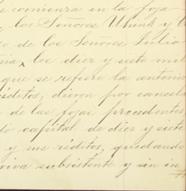 comienza en la foja
los Señores Uhink y C
o de los Señores Julio
los diez y siete mil
que se refiere la anterio
réditos, dieron por cancela
de las fojas precedentes
do capital de diez y siete
y sus réditos, quedando
viva subsistente y sin in